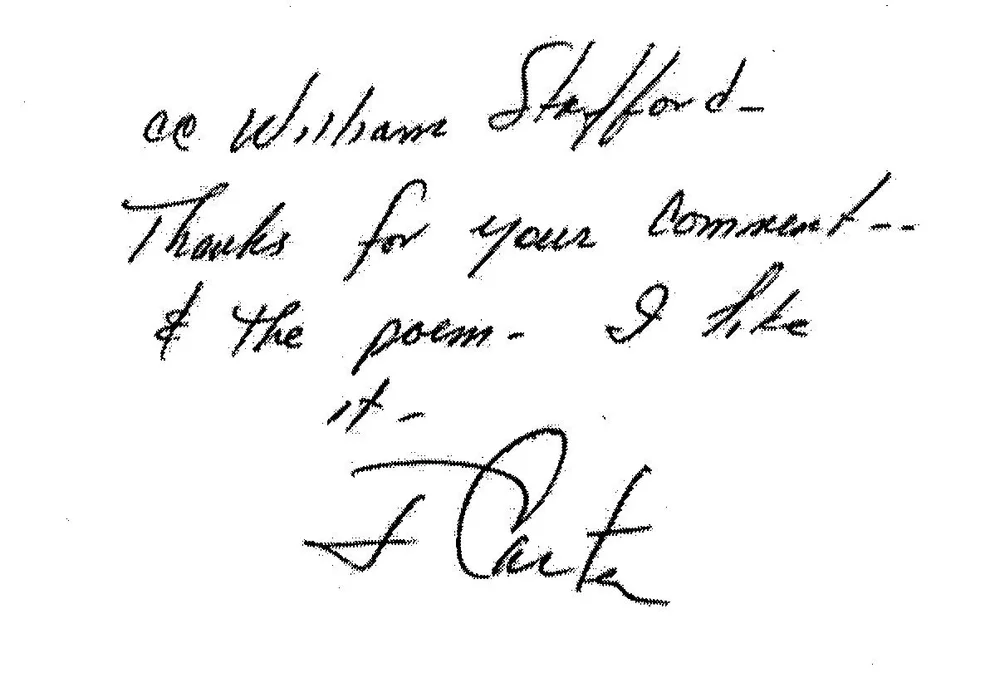 cc William Stafford-
Thanks for your comment--
& the poem- I like
it-
J Carter